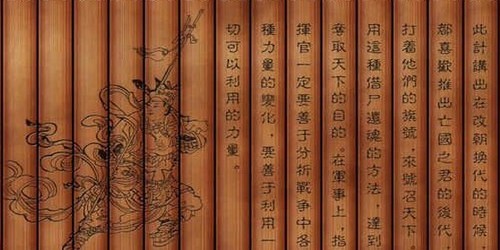 此計講出在改朝換代的時候
都喜歡推出亡國之君的後代
打着他們的旗號，來號召天下
用這種借尸還魂的方法，達到
奪取天下的目的。在軍事上，指
揮官一定要善于分析戰爭中各
種力量的變化，要善于利用一
切可以利用的力量。